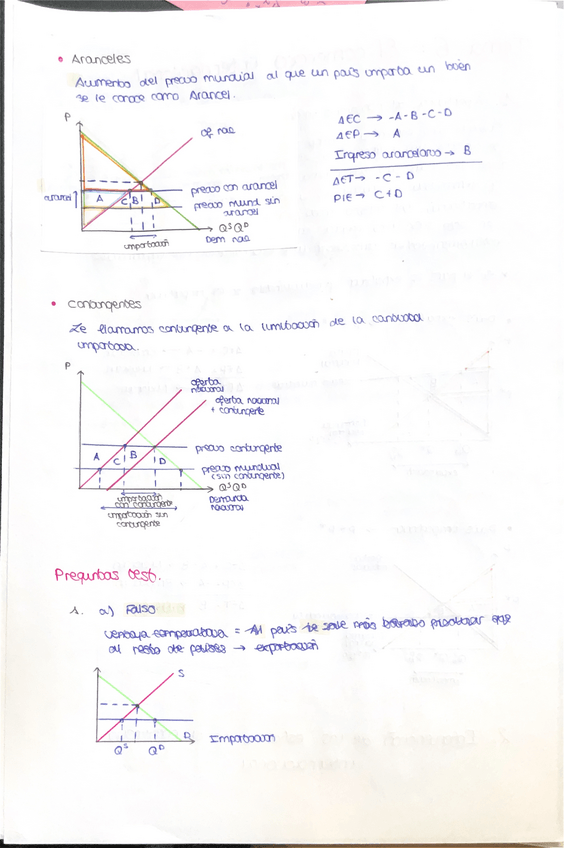 • Aranceles
Aumento del precio mundial al que un país importa un bien
se le conoce como Arancel.
P
of nac
ΔEC → -A-B-C-D
ΔEP → A
Ingreso arancelario → B
ΔET → -C-D
PIE → C+D
arancel
A C B D
precio con arancel
precio mund sin
arancel
QˢQᴰ
importación
Dem nac
• Contingentes
Le llamamos contingente a la limitación de la cantidad
importada.
P
oferta
nacional
oferta nacional
+ contingente
A C B D
precio contingente
precio mundial
(sin contingente)
QˢQᴰ
importación
con contingente
Demanda
nacional
importación sin
contingente
Preguntas test.
1. a) Falso
Ventaja comparativa = Al país le sale más barato producir que
al resto de países → exportación
S
D
Importación
Qˢ Qᴰ